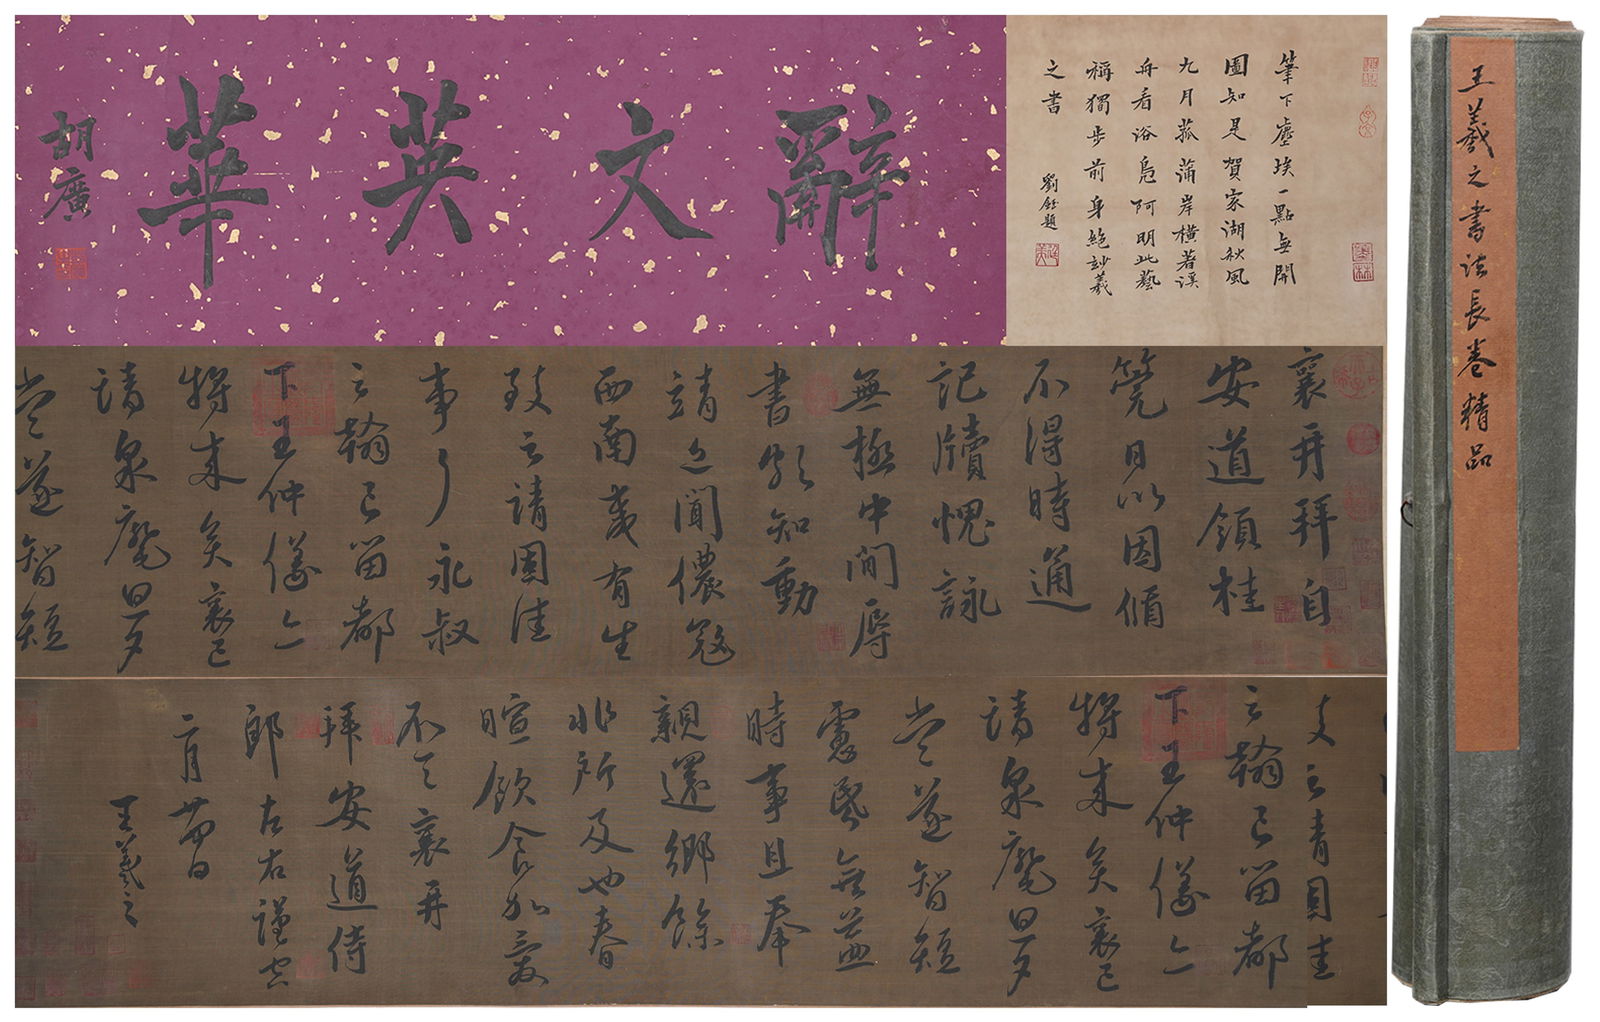 辭文英華
胡廣
筆下塵埃一點無開
圖知是賀家湖秋風
九月菰蒲岸橫著溪
舟看浴鳧阿明此藝
稱獨步前身絕妙羲
之書
劉鈺題
王羲之書法長卷精品
襄再拜自
安道領桂
筦日以因循
不得時通
記牘愧詠
無極中間辱
書頗知動
靖近聞儂寇
西南夷有生
致之請固佳
事了永叔
之翰已留都
下王仲儀亦
將來矣襄已
請泉麾旦夕
當遂智短
之翰已留都
下王仲儀亦
將來矣襄已
請泉麾旦夕
當遂智短
慮昏無益
時事且奉
親還鄉餘
非所及也春
暄飲食加愛
不一一襄再
拜安道侍
郎左右謹空
二月廿四日
王羲之